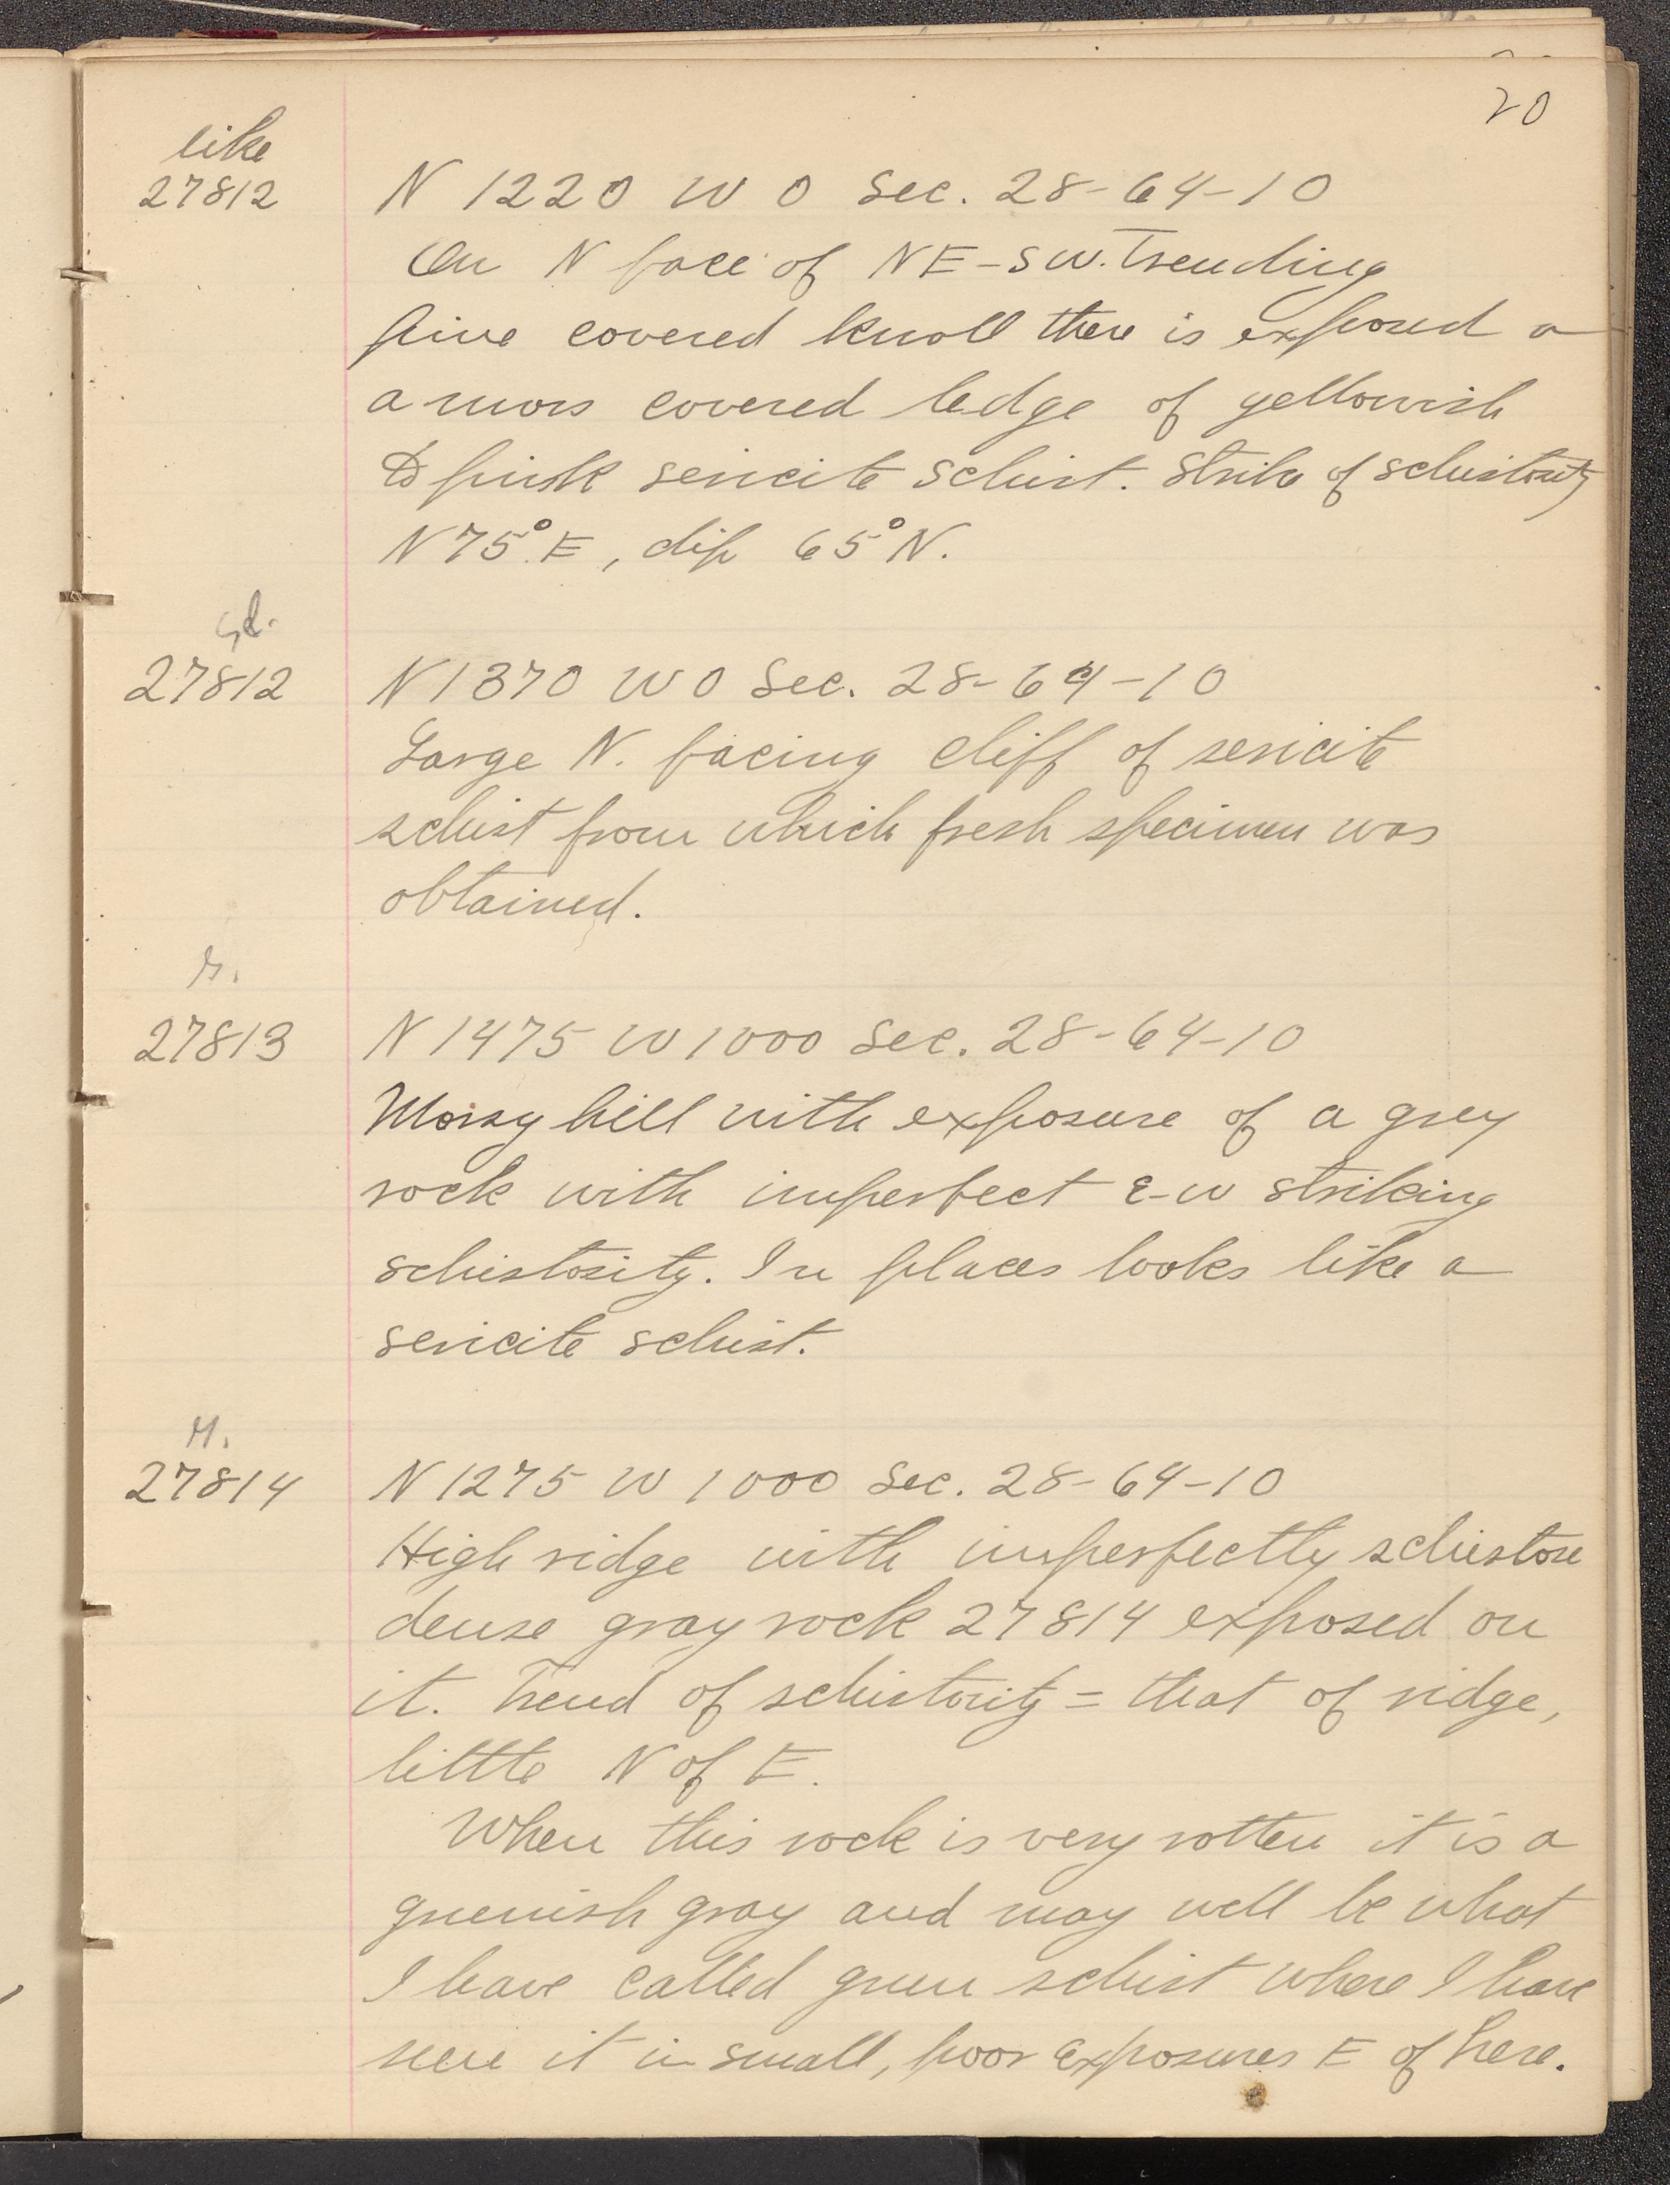 20
like
27812 N 1220 W 0 Sec. 28-64-10
On N face of NE-SW. Trending
pine covered knoll there is exposed a
a moss covered ledge of yellowish
to pink sericite schist. Strike of schistosity
N75°E, dip 65°N.
27812 N1370 W0 Sec. 28-64-10
Large N. facing cliff of sericite
schist from which fresh specimen was
obtained.
27813 N 1475 W 1000 Sec. 28-64-10
Mossy hill with exposure of a grey
rock with imperfect E-W striking
schistosity. In places looks like a
sericite schist.
27814 N 1275 W 1000 Sec. 28-64-10
High ridge with imperfectly schistose
dense gray rock 27814 exposed on
it. Trend of schistosity = that of ridge,
little N of E.
When this rock is very rotten it is a
greenish gray and may well be what
I have called green schist where I have
seen it in small, poor exposures E of here.